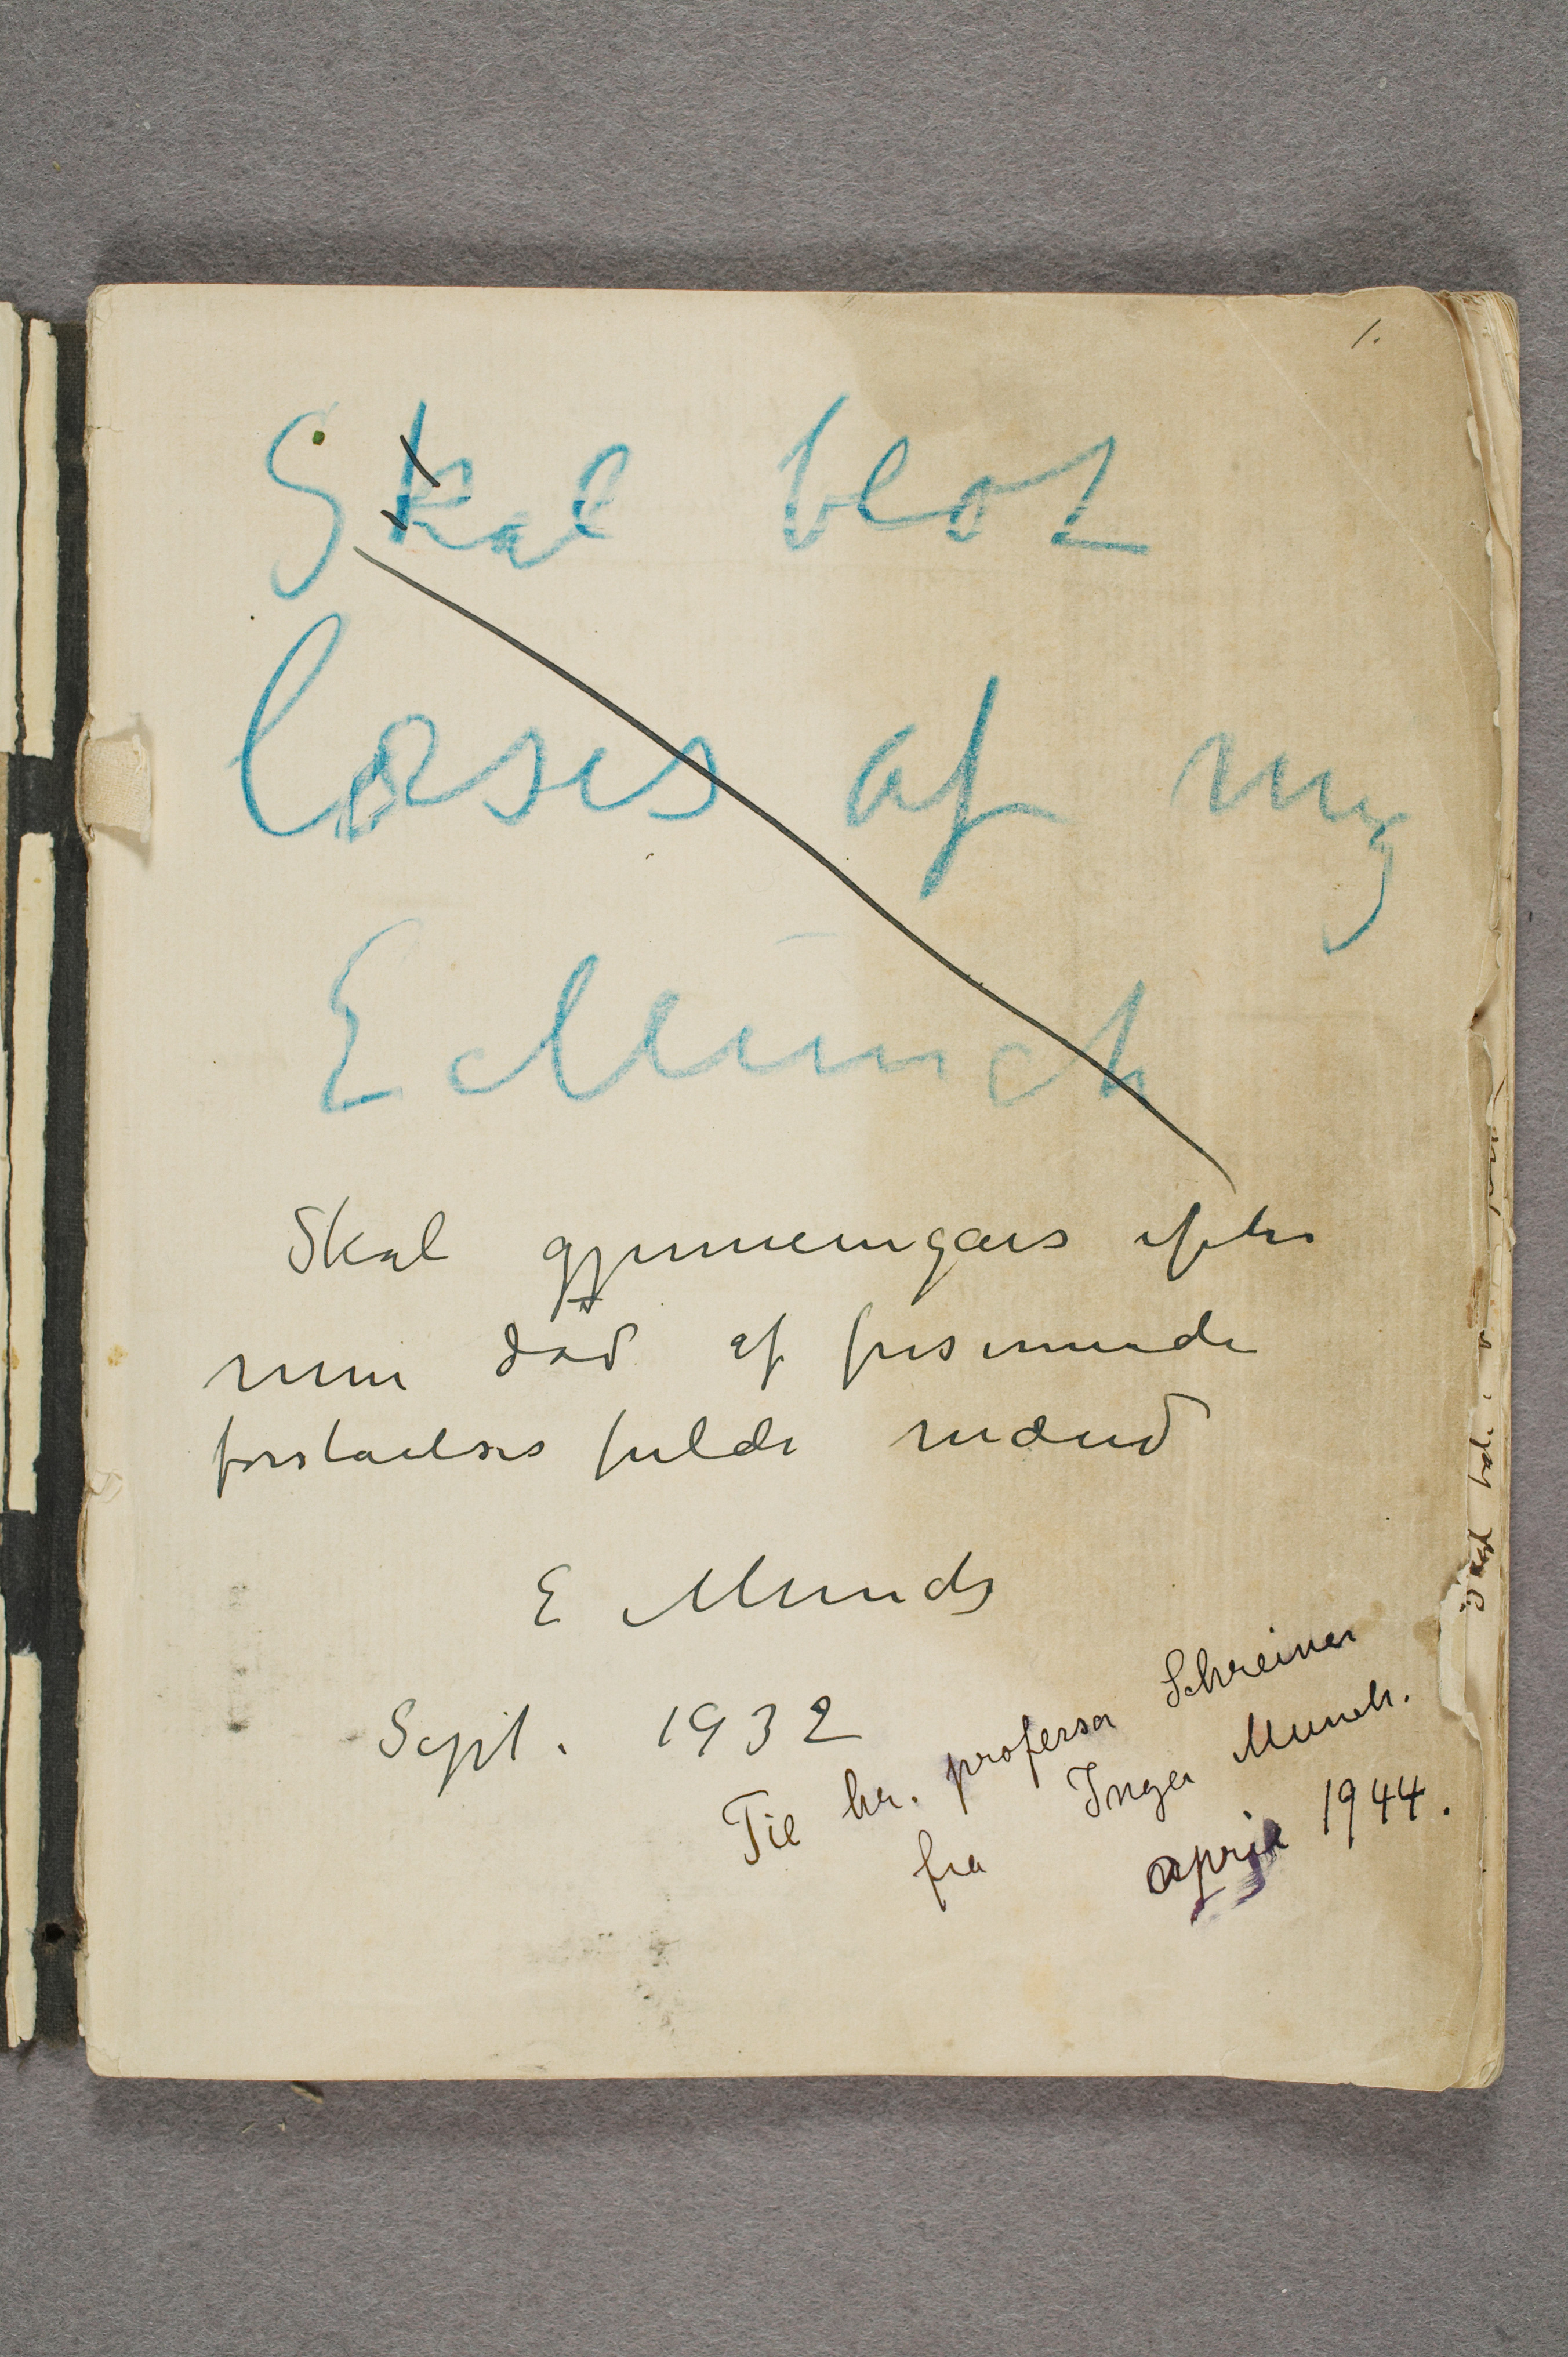 1.
Skal blot
læses af mig
E Munch
Skal gjennemgåes efter
min død af frisinnede
forståelsesfulde mænd
E Munch
Sept. 1932
Til hr. professor Schreiner
fra Inger Munch.
april 1944.